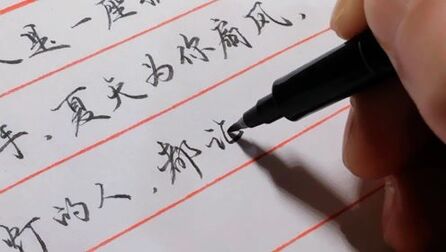 人是一座
手，夏天为你扇风，
灯的人，都